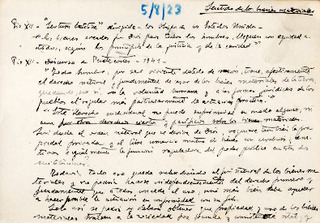 Sentido de los bienes materiales
5/1/23
Pio XII - "Sertum laetitiae" dirigida a los Obispos de los Estados Unidos -
"los bienes creados por Dios para todos los hombres, lleguen con equidad a todos, según los principios de la justicia y de la caridad"
Pio XII - Discurso de Pentecostés - 1941 -
"Todo hombre, por ser viviente dotado de razón, tiene efectivamente
el derecho natural y fundamental de usar de los bienes materiales de la tierra,
quedando eso sí, a la voluntad humana y a las formas jurídicas de los
pueblos el regular más particularmente la actuación práctica.
"Este derecho individual no puede suprimirse en modo alguno, ni
aun por otros derechos ciertos y pacíficos sobre los bienes materiales.
Sin duda el orden natural que se deriva de Dios, requiere también la pro-
piedad privada y el libre comercio mutuo de bienes con cambios y dona-
ciones, e igualmente la función reguladora del poder público en estas dos
instituciones.
todo eso queda subordinado al fin natural de los bienes ma-
teriales y no podría hacerse independientemente del derecho primero y
fundamental que a todos concede el uso, sino más bien debe ayudar
a hacer posible la actuación en conformidad con su fin.
Sólo así se podrá y deberá obtener que propiedad y uso de los bienes
materiales traigan a la sociedad paz fecunda y consistencia vital y